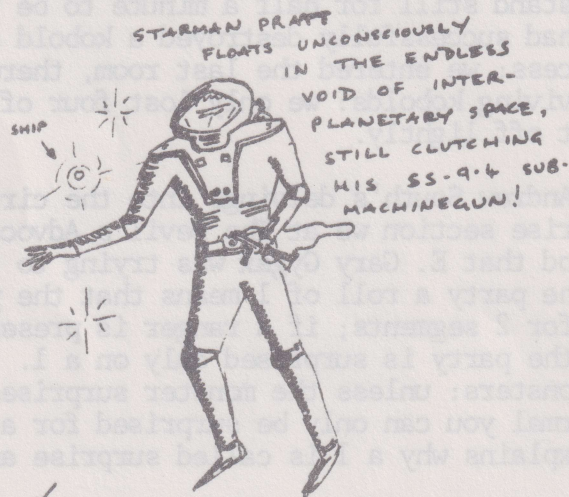 STARMAN PRATT
FLOATS UNCONSCIOUSLY
IN THE ENDLESS
VOID OF INTER-
PLANETARY SPACE,
STILL CLUTCHING
HIS SS-9.4 SUB-
MACHINEGUN!
SHIP